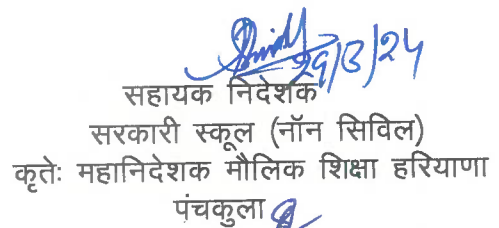 सहायक निदेशक
सरकारी स्कूल (नॉन सिविल)
कृतेः महानिदेशक मौलिक शिक्षा हरियाणा
पंचकुला